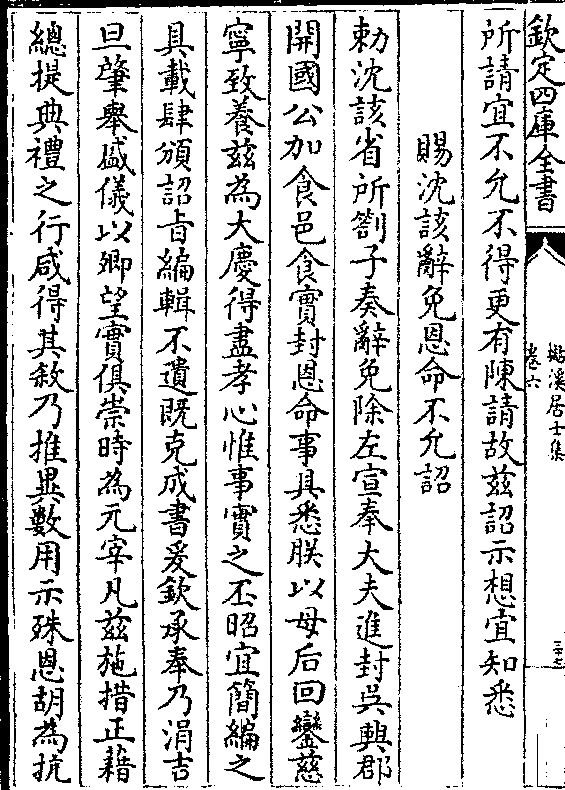 欽定四庫全書
檆溪居士集
卷六
所請宜不允不得更有陳請故兹詔示想宜知悉
賜沈該辭免恩命不允詔
勅沈該省所劄子奏辭免除左宣奉大夫進封吳興郡
開國公加食邑食實封恩命事具悉朕以母后回鑾慈
寧致養兹為大慶得盡孝心惟事實之丕昭宜簡編之
具載肆頒詔旨編輯不遺既克成書爰欽承奉乃涓吉
旦肇舉盛儀以卿望實俱崇時為元宰凡兹施措正藉
總提典禮之行咸得其敘乃推異數用示殊恩胡為抗